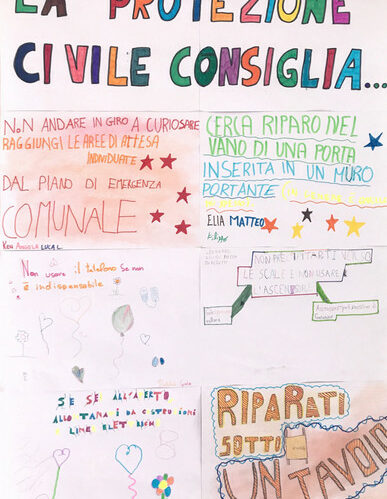 LA PROTEZIONE
CIVILE CONSIGLIA...
NON ANDARE IN GIRO A CURIOSARE
RAGGIUNGI LE AREE DI ATTESA
INDIVIDUATE
DAL PIANO DI EMERGENZA
COMUNALE
CERCA RIPARO NEL
VANO DI UNA PORTA
INSERITA IN UN MURO
PORTANTE
ELIA MATTEO
Non usare il telefono se non
è indispensabile
NON PRECIPITARTI VERSO
LE SCALE E NON USARE
L'ASCENSORE
SE SEI ALL'APERTO
ALLONTANATI DA COSTRUZIONI
E LINEE ELETTRICHE
RIPARATI
SOTTO
UN TAVOLO